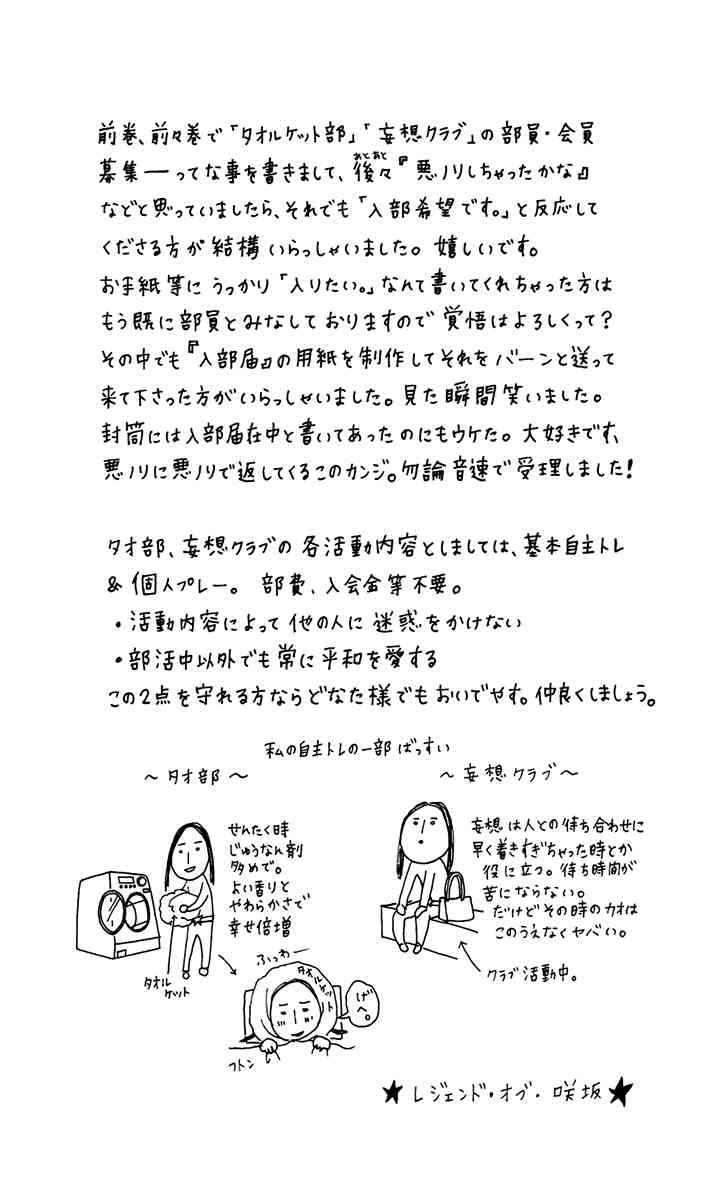 前巻、前々巻で「タオルケット部」「妄想クラブ」の部員・会員
募集ーってな事を書きまして、後々『悪ノリしちゃったかな』
あとあと
などと思っていましたら、それでも「入部希望です。」と反応して
くださる方が結構いらっしゃいました。嬉しいです。
お手紙等にうっかり「入りたい。」なんて書いてくれちゃった方は
もう既に部員とみなしておりますので覚悟はよろしくって?
その中でも『入部届』の用紙を制作してそれをバーンと送って
来て下さった方がいらっしゃいました。見た瞬間笑いました。
封筒には入部届在中と書いてあったのにもウケた。大好きです、
悪ノリに悪ノリで返してくるこのカンジ。勿論音速で受理しました!
タオ部、妄想クラブの各活動内容としましては、基本自主トレ
&個人プレー。 部費、入会金等不要。
・活動内容によって他の人に迷惑をかけない
・部活中以外でも常に平和を愛する
この2点を守れる方ならどなた様でもおいでやす。仲良くしましょう。
私の自主トレの一部ばっすい
～タオ部～
せんたく時
じゅうなん剤
多めで。
よい香りと
やわらかさで
幸せ倍増
タオル
ケット
ふっわー
タオルケット
げへ。
フトン
～妄想クラブ～
妄想は人との待ち合わせに
早く着きすぎちゃった時とか
役に立つ。待ち時間が
苦にならない。
だけどその時のカオは
このうえなくヤバい。
クラブ活動中。
★レジェンド・オブ・咲坂★